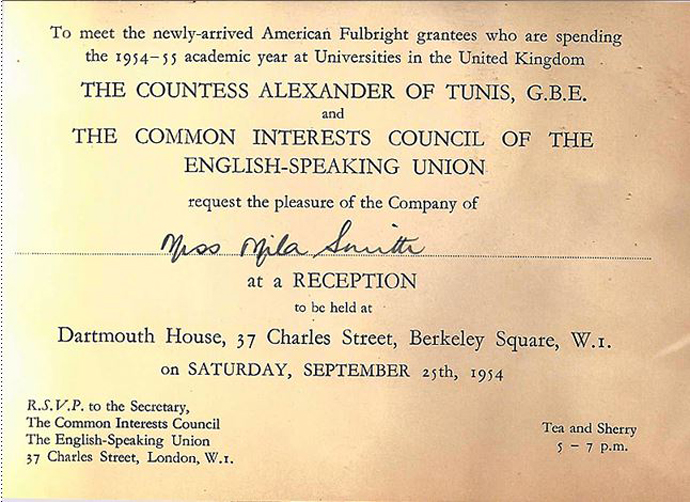 To meet the newly-arrived American Fulbright grantees who are spending
the 1954-55 academic year at Universities in the United Kingdom
THE COUNTESS ALEXANDER OF TUNIS, G.B.E.
and
THE COMMON INTERESTS COUNCIL OF THE
ENGLISH-SPEAKING UNION
request the pleasure of the Company of
Miss Mila Smith
at a RECEPTION
to be held at
Dartmouth House, 37 Charles Street, Berkeley Square, W.1.
on SATURDAY, SEPTEMBER 25th, 1954
R.S.V.P. to the Secretary,
The Common Interests Council
The English-Speaking Union
37 Charles Street, London, W.1.
Tea and Sherry
5 – 7 p.m.